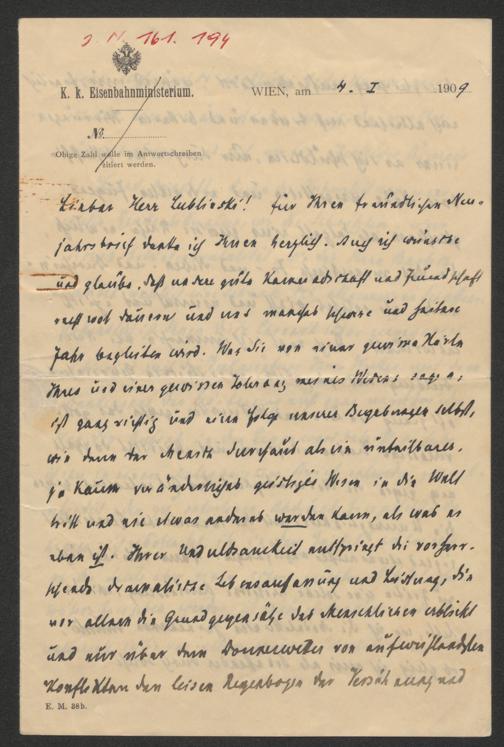 J. N. 161.194
K. k. Eisenbahnministerium.
WIEN, am 4. I 1909
№
Obige Zahl wolle im Antwortschreiben
zitiert werden.
Lieber Herr Lublinski! für Ihren freundlichen Neu-
jahrsbrief danke ich Ihnen herzlich. Auch ich wünsche
und glaube, daß unsere gute Kameradschaft und Freundschaft
recht wol dauern und uns manches schwere und heitere
Jahr begleiten wird. Was Sie von einer gewissen Härte
Ihres und einer gewissen Toleranz meines Wesens sagen,
ist ganz richtig und eine Folge unserer Begabungen selbst,
wie denn der Mensch durchaus als ein unteilbares,
ja kaum veränderliches geistiges Wesen in die Welt
tritt und nie etwas anderes werden kann, als was er
eben ist. Ihrer Unduldsamkeit entspringt die vorherr-
schende dramatische Lebensauffassung und Leistung, die
vor allem die Grundgegensätze des Menschlichen erblickt
und nur über dem Donnerwetter von
Konflikten den leisen Regenbogen der Versöhnung und
E. M. 38b.